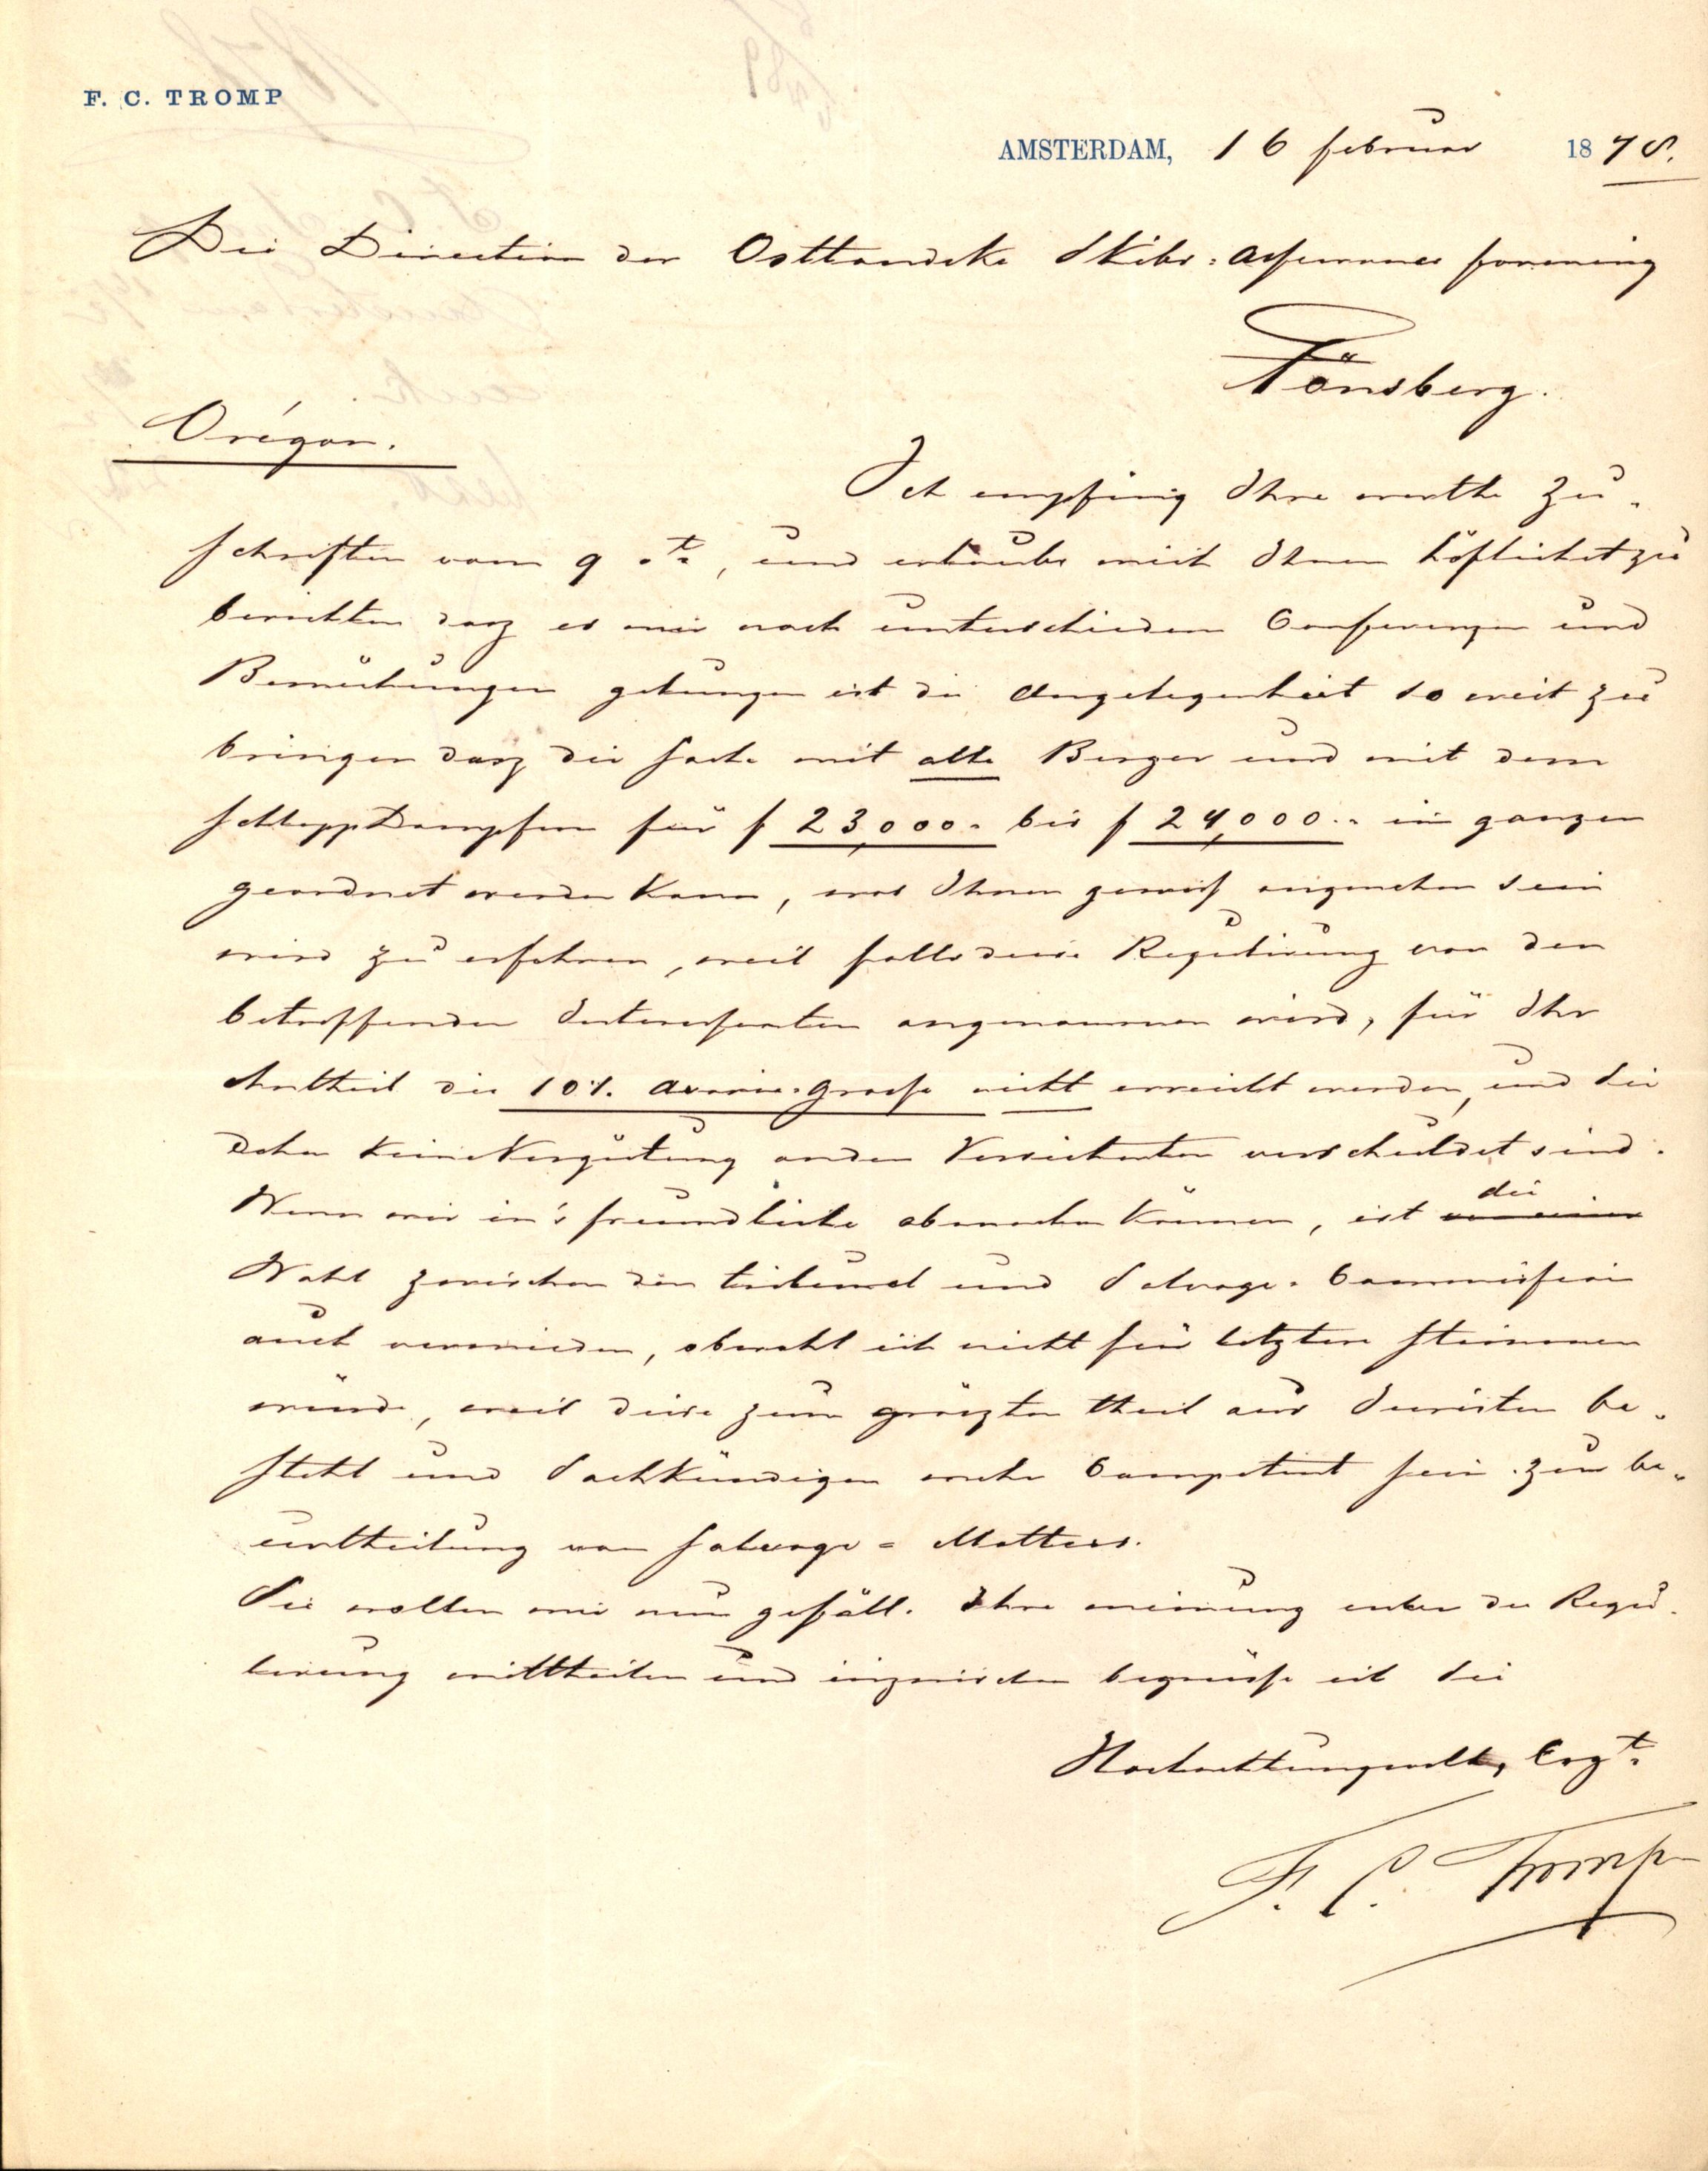 F. C. TROMP
AMSTERDAM, 16 februar 1878.
Die Direction der Ostlandske Skibs-Assurance forening
Tönsberg.
Orégon.
Ich empfing Ihre werthe Zu-
schriften vom 9 ct., und erlaube mich Ihnen höflichst zu
berichten dasz es mir nach unterschieden Conferenzen und
Bemühungen gelungen ist die Angelegenheit so weit zu
bringen dasz die Sache mit alle Berger und mit dem
Schleppdampfern für f 23,000.- bis f 24,000.- im ganzen
geordnet werden kann, was Ihnen gewiss angenehm sein
wird zu erfahren, weil falls diese Regulirung von den
betreffenden Interessenten angenommen wird, für Ihr
Antheil die 10%. Averie-Grosse nicht erreicht werden, und Sie
daher keine Vergütung an den Versicherten verschuldet sind.
Wenn wir in's freundliche abmachen können, ist die
Wahl zwischen den tribunal und Salvage-Commission
auch vermieden, obwohl ich nicht für letztere stimmen
würde, weil diese zum gröszten theil aus Juristen be-
steht und Sachkündigen mehr Competent sein zur be-
urtheilung von Salvage-Matters.
Sie wollen mir nun gefäll. Ihre meinung über die Regu-
lirung mittheilen und inzwischen begrüsse ich Sie
Hochachtungsvoll, Ergt.
F. C. Tromp